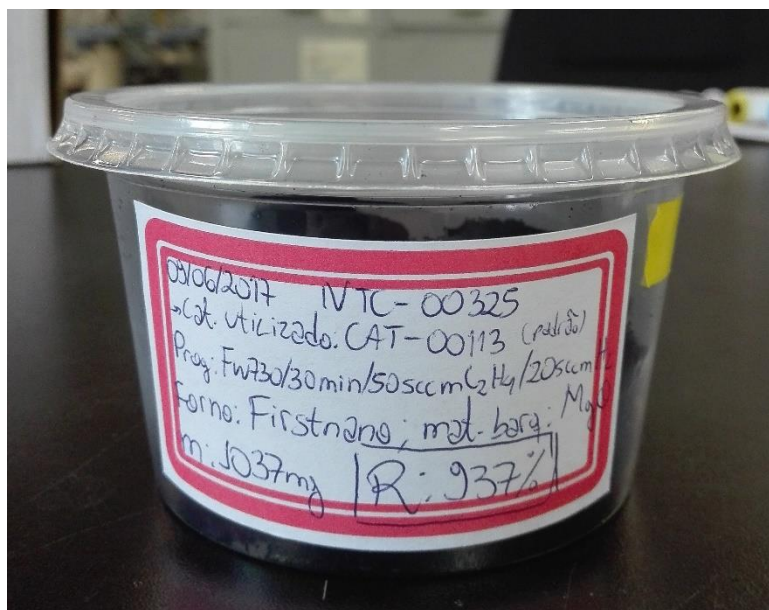 09/06/2017 NTC-00325
→Cat. utilizado: CAT-00113 (padrão)
Prog: FW730/30min/50sccmC₂H₄/20sccmH₂
Forno: Firstnano; mat. barq: MgO
m: 1037mg R: 937%